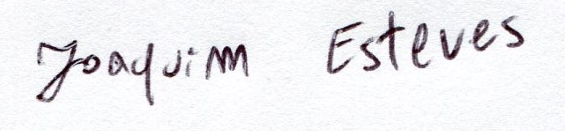 Joaquim Esteves